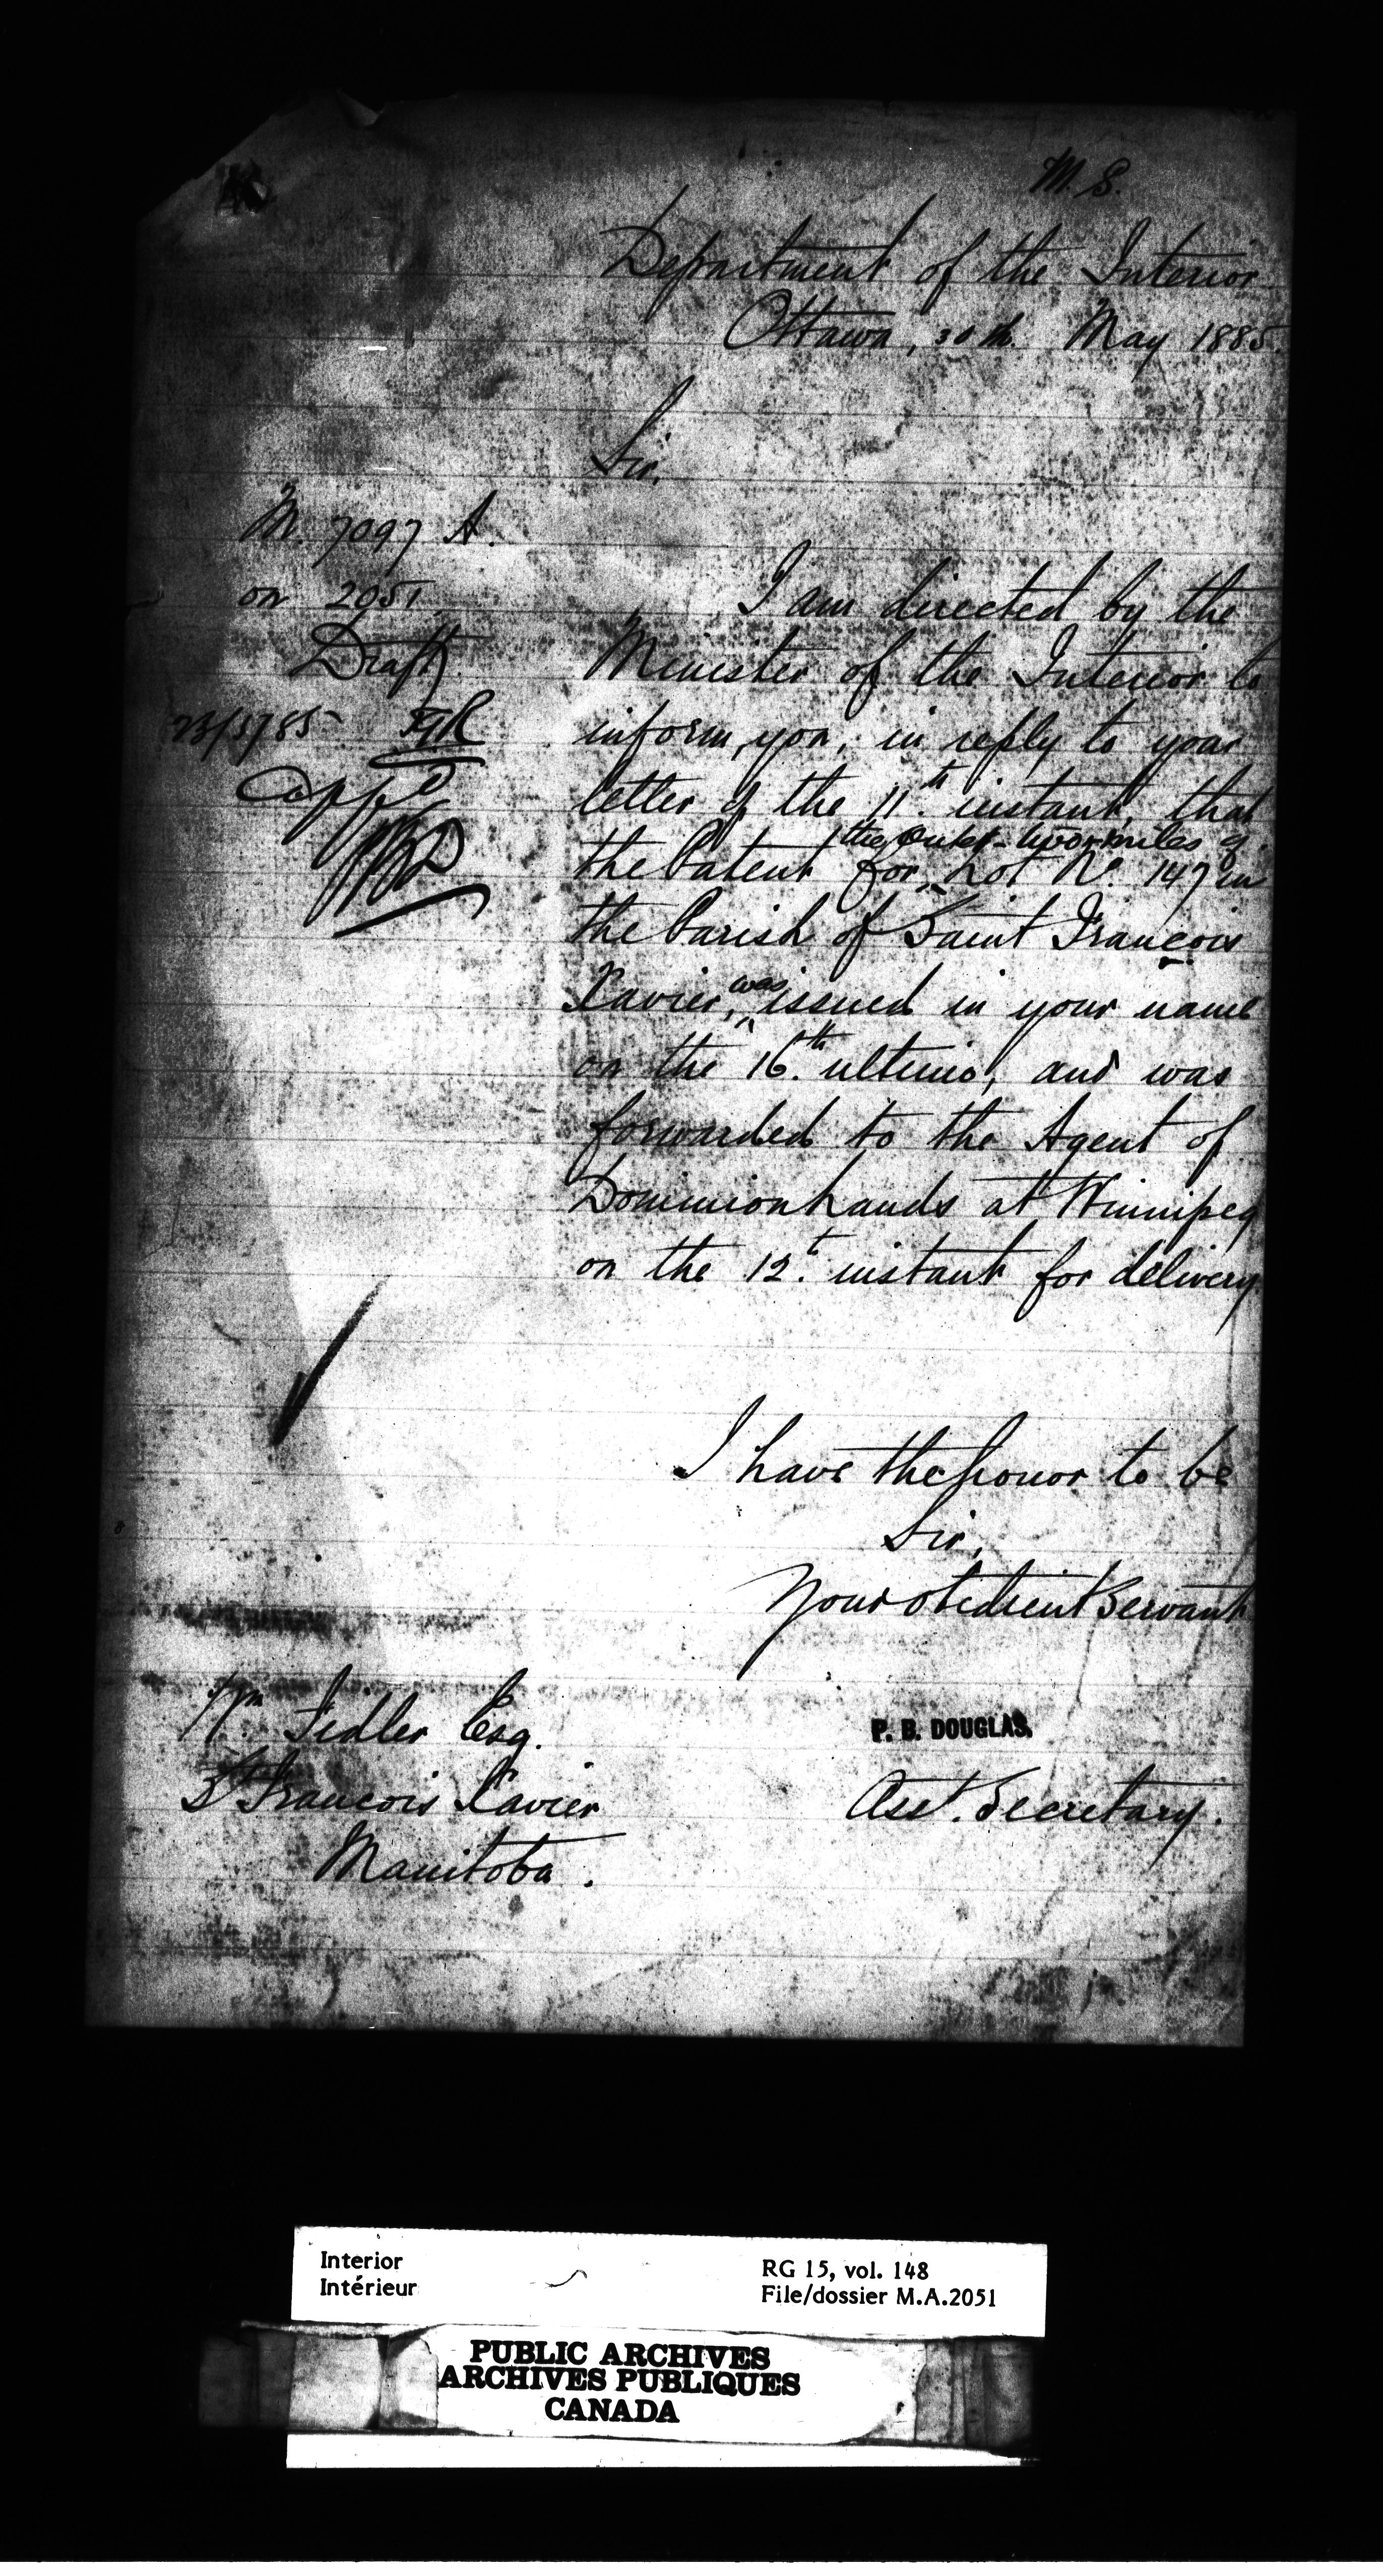 M. S.
Department of the Interior
Ottawa, 30th. May 1885.
Sir,
M. 7097 A.
on 2051
Draft
23/5/85
I am directed by the
Minister of the Interior to
inform you, in reply to your
letter of the 11th instant, that
the outer two miles of
the Patent for, Lot No. 147 in
the Parish of Saint François
was
Xavier, issued in your name
on the 16th. ultimo, and was
forwarded to the Agent of
Dominion Lands at Winnipeg
on the 12t. instant for delivery
I have the honor to be
Sir,
Your obedient Servant
Wm Fidler Esq.
St François Xavier
Manitoba.
P. B. DOUGLAS,
Asst. Secretary.
Interior
Intérieur
RG 15, vol. 148
File/dossier M.A.2051
PUBLIC ARCHIVES
ARCHIVES PUBLIQUES
CANADA